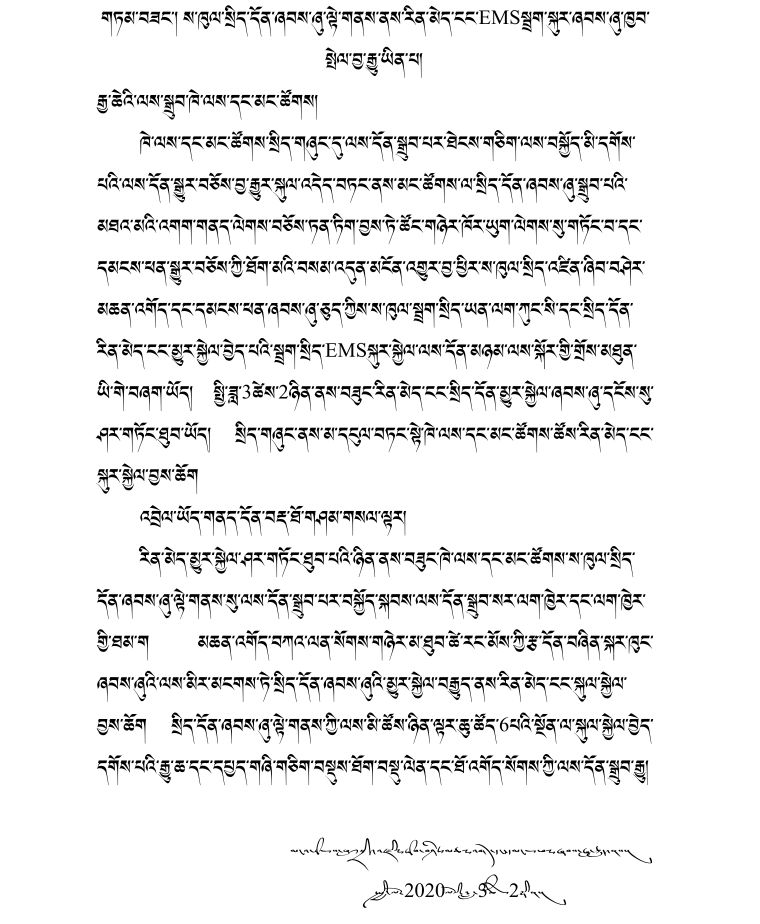 གཏམ་བཟང་། ས་ཁུལ་སྲིད་དོན་ཞབས་ཞུ་ལྟེ་གནས་ནས་རིན་མེད་ངང་EMSསྦྲག་སྐུར་ཞབས་ཞུ་ཁྱབ་
སྤེལ་བྱ་རྒྱུ་ཡིན་པ།
རྒྱ་ཆེའི་ལས་སྒྲུབ་ཁེ་ལས་དང་མང་ཚོགས།
ཁེ་ལས་དང་མང་ཚོགས་སྲིད་གཞུང་དུ་ལས་དོན་སྒྲུབ་པར་ཐེངས་གཅིག་ལས་བསྐྱོད་མི་དགོས་
པའི་ལས་དོན་སྒྱུར་བཅོས་བྱ་རྒྱུར་སྐུལ་འདེད་བཏང་ནས་མང་ཚོགས་ལ་སྲིད་དོན་ཞབས་ཞུ་སྒྲུབ་པའི་
མཐའ་མའི་འགག་གནད་ལེགས་བཅོས་ཏན་ཏིག་བྱས་ཏེ་ཚོང་གཉེར་ཁོར་ཡུག་ལེགས་སུ་གཏོང་བ་དང་
དམངས་ཕན་སྒྱུར་བཅོས་ཀྱི་ཐོག་མའི་བསམ་འདུན་མངོན་འགྱུར་བྱ་ཕྱིར་ས་ཁུལ་སྲིད་འཛིན་ཞིབ་བཤེར་
མཆན་འགོད་དང་དམངས་ཕན་ཞབས་ཞུ་ཅུད་ཀྱིས་ས་ཁུལ་སྦྲག་སྲིད་ཡན་ལག་ཀུང་སི་དང་སྲིད་དོན་
རིན་མེད་ངང་མྱུར་སྐྱེལ་བྱེད་པའི་སྦྲག་སྲིད་EMSསྐུར་སྐྱེལ་ལས་དོན་མཉམ་ལས་སྐོར་གྱི་གྲོས་མཐུན་
ཡི་གེ་བཞག་ཡོད། སྤྱི་ཟླ་3ཚེས་2ཉིན་ནས་བཟུང་རིན་མེད་ངང་སྲིད་དོན་མྱུར་སྐྱེལ་ཞབས་ཞུ་དངོས་སུ་
ཤར་གཏོང་ཐུབ་ཡོད། སྲིད་གཞུང་ནས་མ་དངུལ་བཏང་སྟེ་ཁེ་ལས་དང་མང་ཚོགས་ཚོས་རིན་མེད་ངང་
སྐུར་སྐྱེལ་བྱས་ཆོག
འབྲེལ་ཡོད་གནད་དོན་བརྡ་ཐོ་གཤམ་གསལ་ལྟར།
རིན་མེད་མྱུར་སྐྱེལ་ཤར་གཏོང་ཐུབ་པའི་ཉིན་ནས་བཟུང་ཁེ་ལས་དང་མང་ཚོགས་ས་ཁུལ་སྲིད་
དོན་ཞབས་ཞུ་ལྟེ་གནས་སུ་ལས་དོན་སྒྲུབ་པར་བསྐྱོད་སྐབས་ལས་དོན་སྒྲུབ་སར་ལག་ཁྱེར་དང་ལག་ཁྱེར་
གྱི་ཐམ་ག མཆན་འགོད་བཀའ་ལན་སོགས་གཉེར་མ་ཐུབ་ཚེ་རང་མོས་ཀྱི་རྩ་དོན་བཞིན་སྐར་ཁུང་
ཞབས་ཞུའི་ལས་མིར་མངགས་ཏེ་སྲིད་དོན་ཞབས་ཞུའི་མྱུར་སྐྱེལ་བརྒྱུད་ནས་རིན་མེད་ངང་སྐུལ་སྐྱེལ་
བྱས་ཆོག སྲིད་དོན་ཞབས་ཞུ་ལྟེ་གནས་ཀྱི་ལས་མི་ཚོས་ཉིན་ལྟར་ཆུ་ཚོད་6པའི་སྔོན་ལ་སྐུལ་སྐྱེལ་བྱེད་
དགོས་པའི་རྒྱུ་ཆ་དང་དཔྱད་གཞི་གཅིག་བསྡུས་ཐོག་བསྡུ་ལེན་དང་ཐོ་འགོད་སོགས་ཀྱི་ལས་དོན་སྒྲུབ་རྒྱུ།
2020 3 2